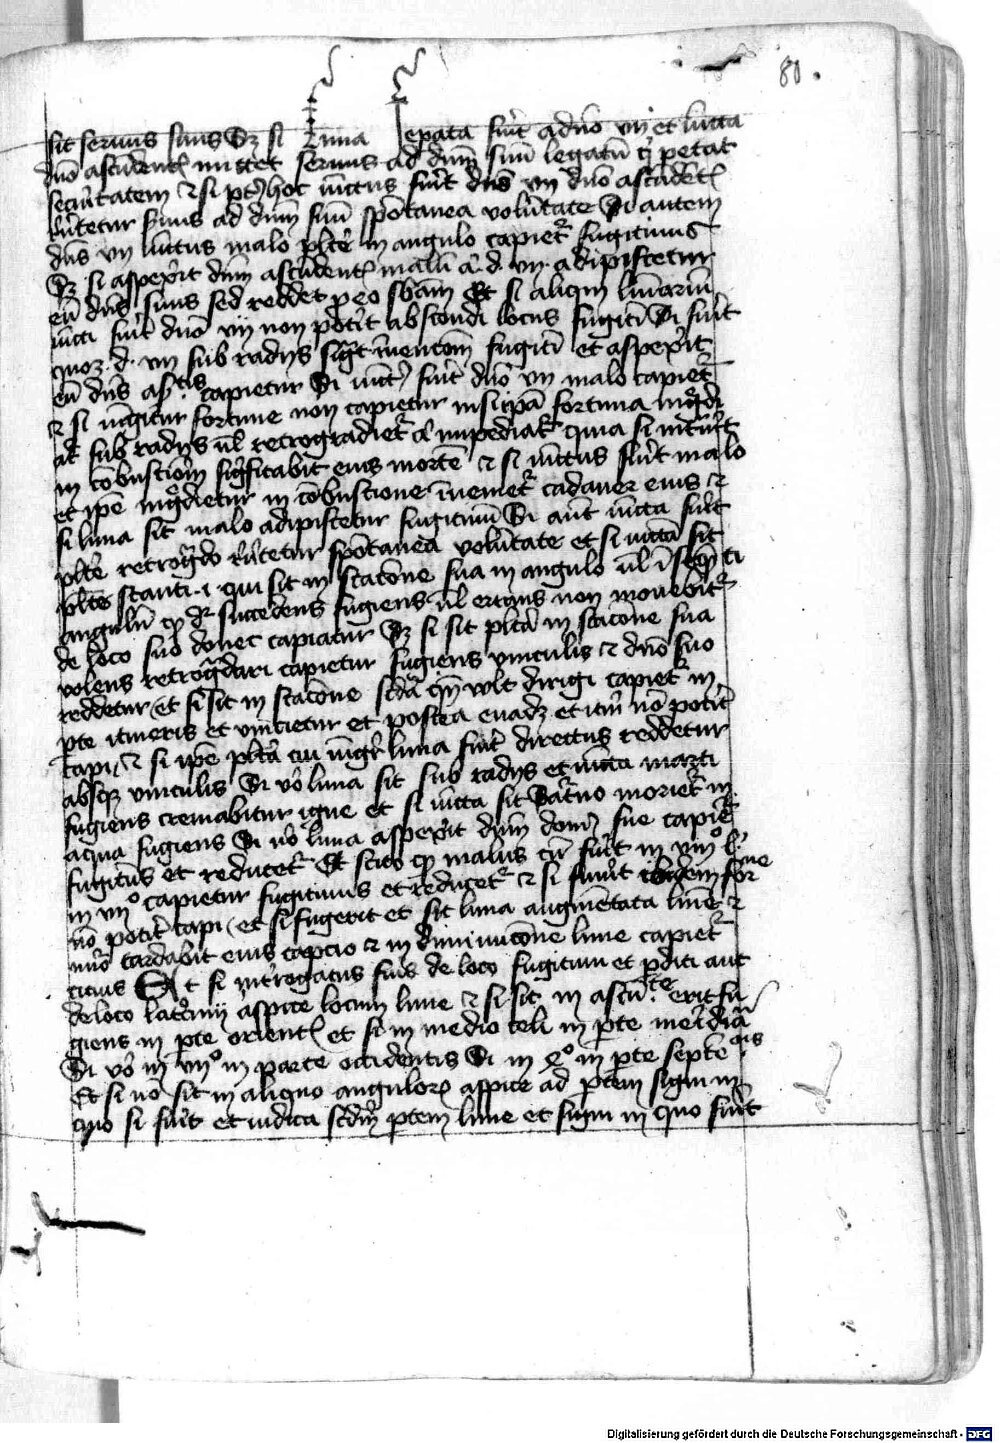 80.
sit servus suus Sz si luna sepata fuit a dno vij et iuncta
dno ascendentis mittet servus ad dnm suum legatum qui petat
securitatem et si post hoc iunctus fuit dns vij dno ascendentis
revertetur servus ad dnm suum spontanea voluntate Si autem
dns vij iunctus malo plte in angulo capietur fugitivus
Sz si aspexit dnm ascendentis malum a d. vij. adipiscetur
eum dns suus sed reddet pro eo substantiam Et si aliquis luminarium
iuncti fuit dno vij non potit abscondi locus fugitivi Si fuit
quoz. d. vij sub radijs significat inventionem fugitivi et aspexit
eum dns ascendentis capietur Si iunctus fuit dno vij malo capietur
et si iungitur fortune non capietur nisi ipsa fortuna ingrediatur
sub radijs vel retrogradietur aut impediatur quia si intraverit
in combustionem significabit eius mortem et si iunctus fuit malo
et ipse ingredietur in combustione invenietur cadaver eius et
si luna sit malo adipiscetur fugitivum Si aut iuncta fuit
plte retrogrado revertetur spontanea voluntate et si iuncta sit
plte stanti .i. qui sit in stacione sua in angulo vel in sequenti
angulum qui dr succedens fugiens vel errans non movebitur
de loco suo donec capiatur Sz si sit plta in stacione sua
volens retrogradari capietur fugiens vinculis et dno suo
reddetur et si sit in stacione scda qn vult dirigi capietur in
pte itineris et vincietur et postea evadet et iterum no potit
capi, et si ipse plta cui iungitur luna fuit directus reddetur
absque vinculis Si vo luna sit sub radijs et iuncta marti
fugiens cremabitur igne et si iuncta sit Saturno morietur in
aqua fugiens Si vo luna aspexit dnm domus sue capietur
fugitivus et reducetur Et scito quod malus cum fuit in vij
in vijo capietur fugitivus et reducetur et si fuit ibidem fortune
no potit capi et si fugerit et sit luna augmentata lumine et
numero tardabit eius capcio et in diminucone lune capietur
cicius Et si interrogatus fuis de loco fugitivi et perditi aut
de loco latronis aspice locum lune et si sit in ascendente erit fu
giens in pte orientis et si in medio celi in pte meridiana
Si vo in vijo in parte occidentis Si in xo in pte septemtrionis
Et si no sit in aliquo angulorum aspice ad ptem signi in
quo si fuit et iudica scdm ptem lune et signi in quo fuit
Digitalisierung gefördert durch die Deutsche Forschungsgemeinschaft - DFG